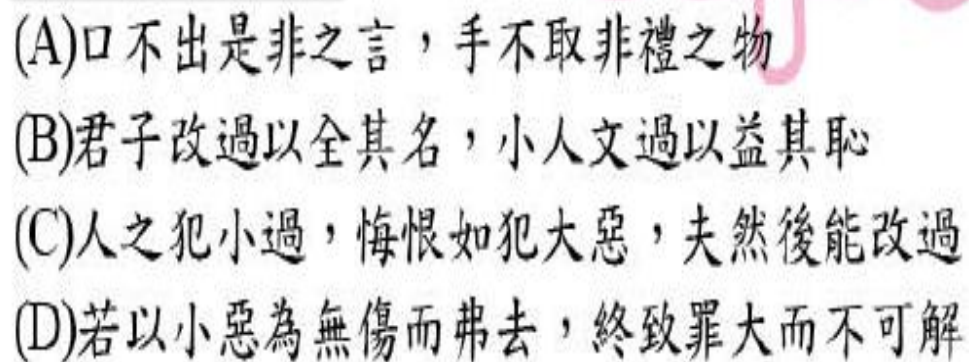 (A)口不出是非之言，手不取非禮之物
(B)君子改過以全其名，小人文過以益其恥
(C)人之犯小過，悔恨如犯大惡，夫然後能改過
(D)若以小惡為無傷而弗去，終致罪大而不可解